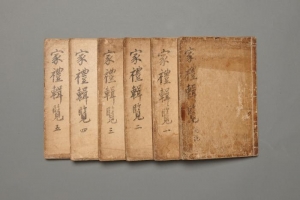 家禮輯覽
家禮輯覽 一
家禮輯覽 二
家禮輯覽 三
家禮輯覽 四
家禮輯覽 五